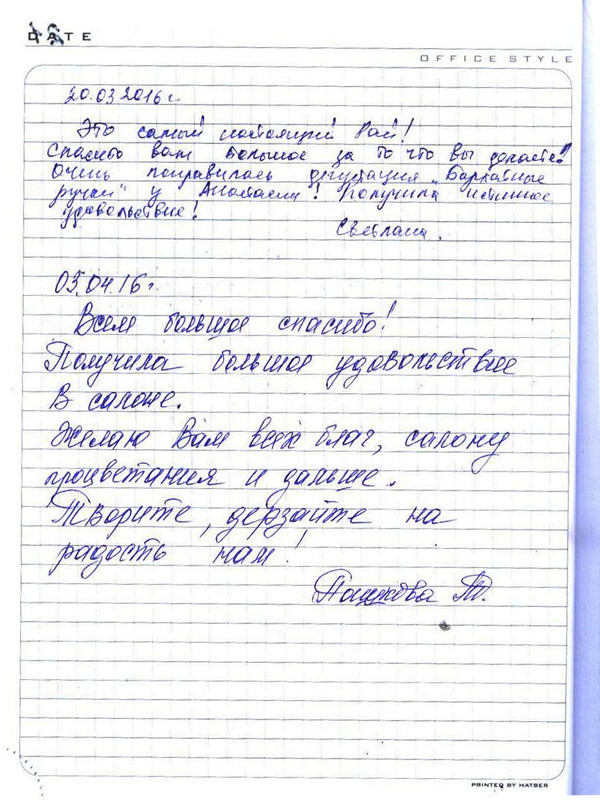 DATE
OFFICE STYLE
20.03 2016 г.
Это самый настоящий Рай!
Спасибо вам большое за то что вы делаете!!
Очень понравилась дегустация „Бархатные
ручки" у Анастасии! Получила истинное
удовольствие!
Светлана.
03.04.16 г.
Всем большое спасибо!
Получила большое удовольствие
в салоне.
Желаю Вам всех благ, салону
процветания и дальше.
Творите, дерзайте на
радость нам!
Пашкова Т.
PRINTED BY HATBER